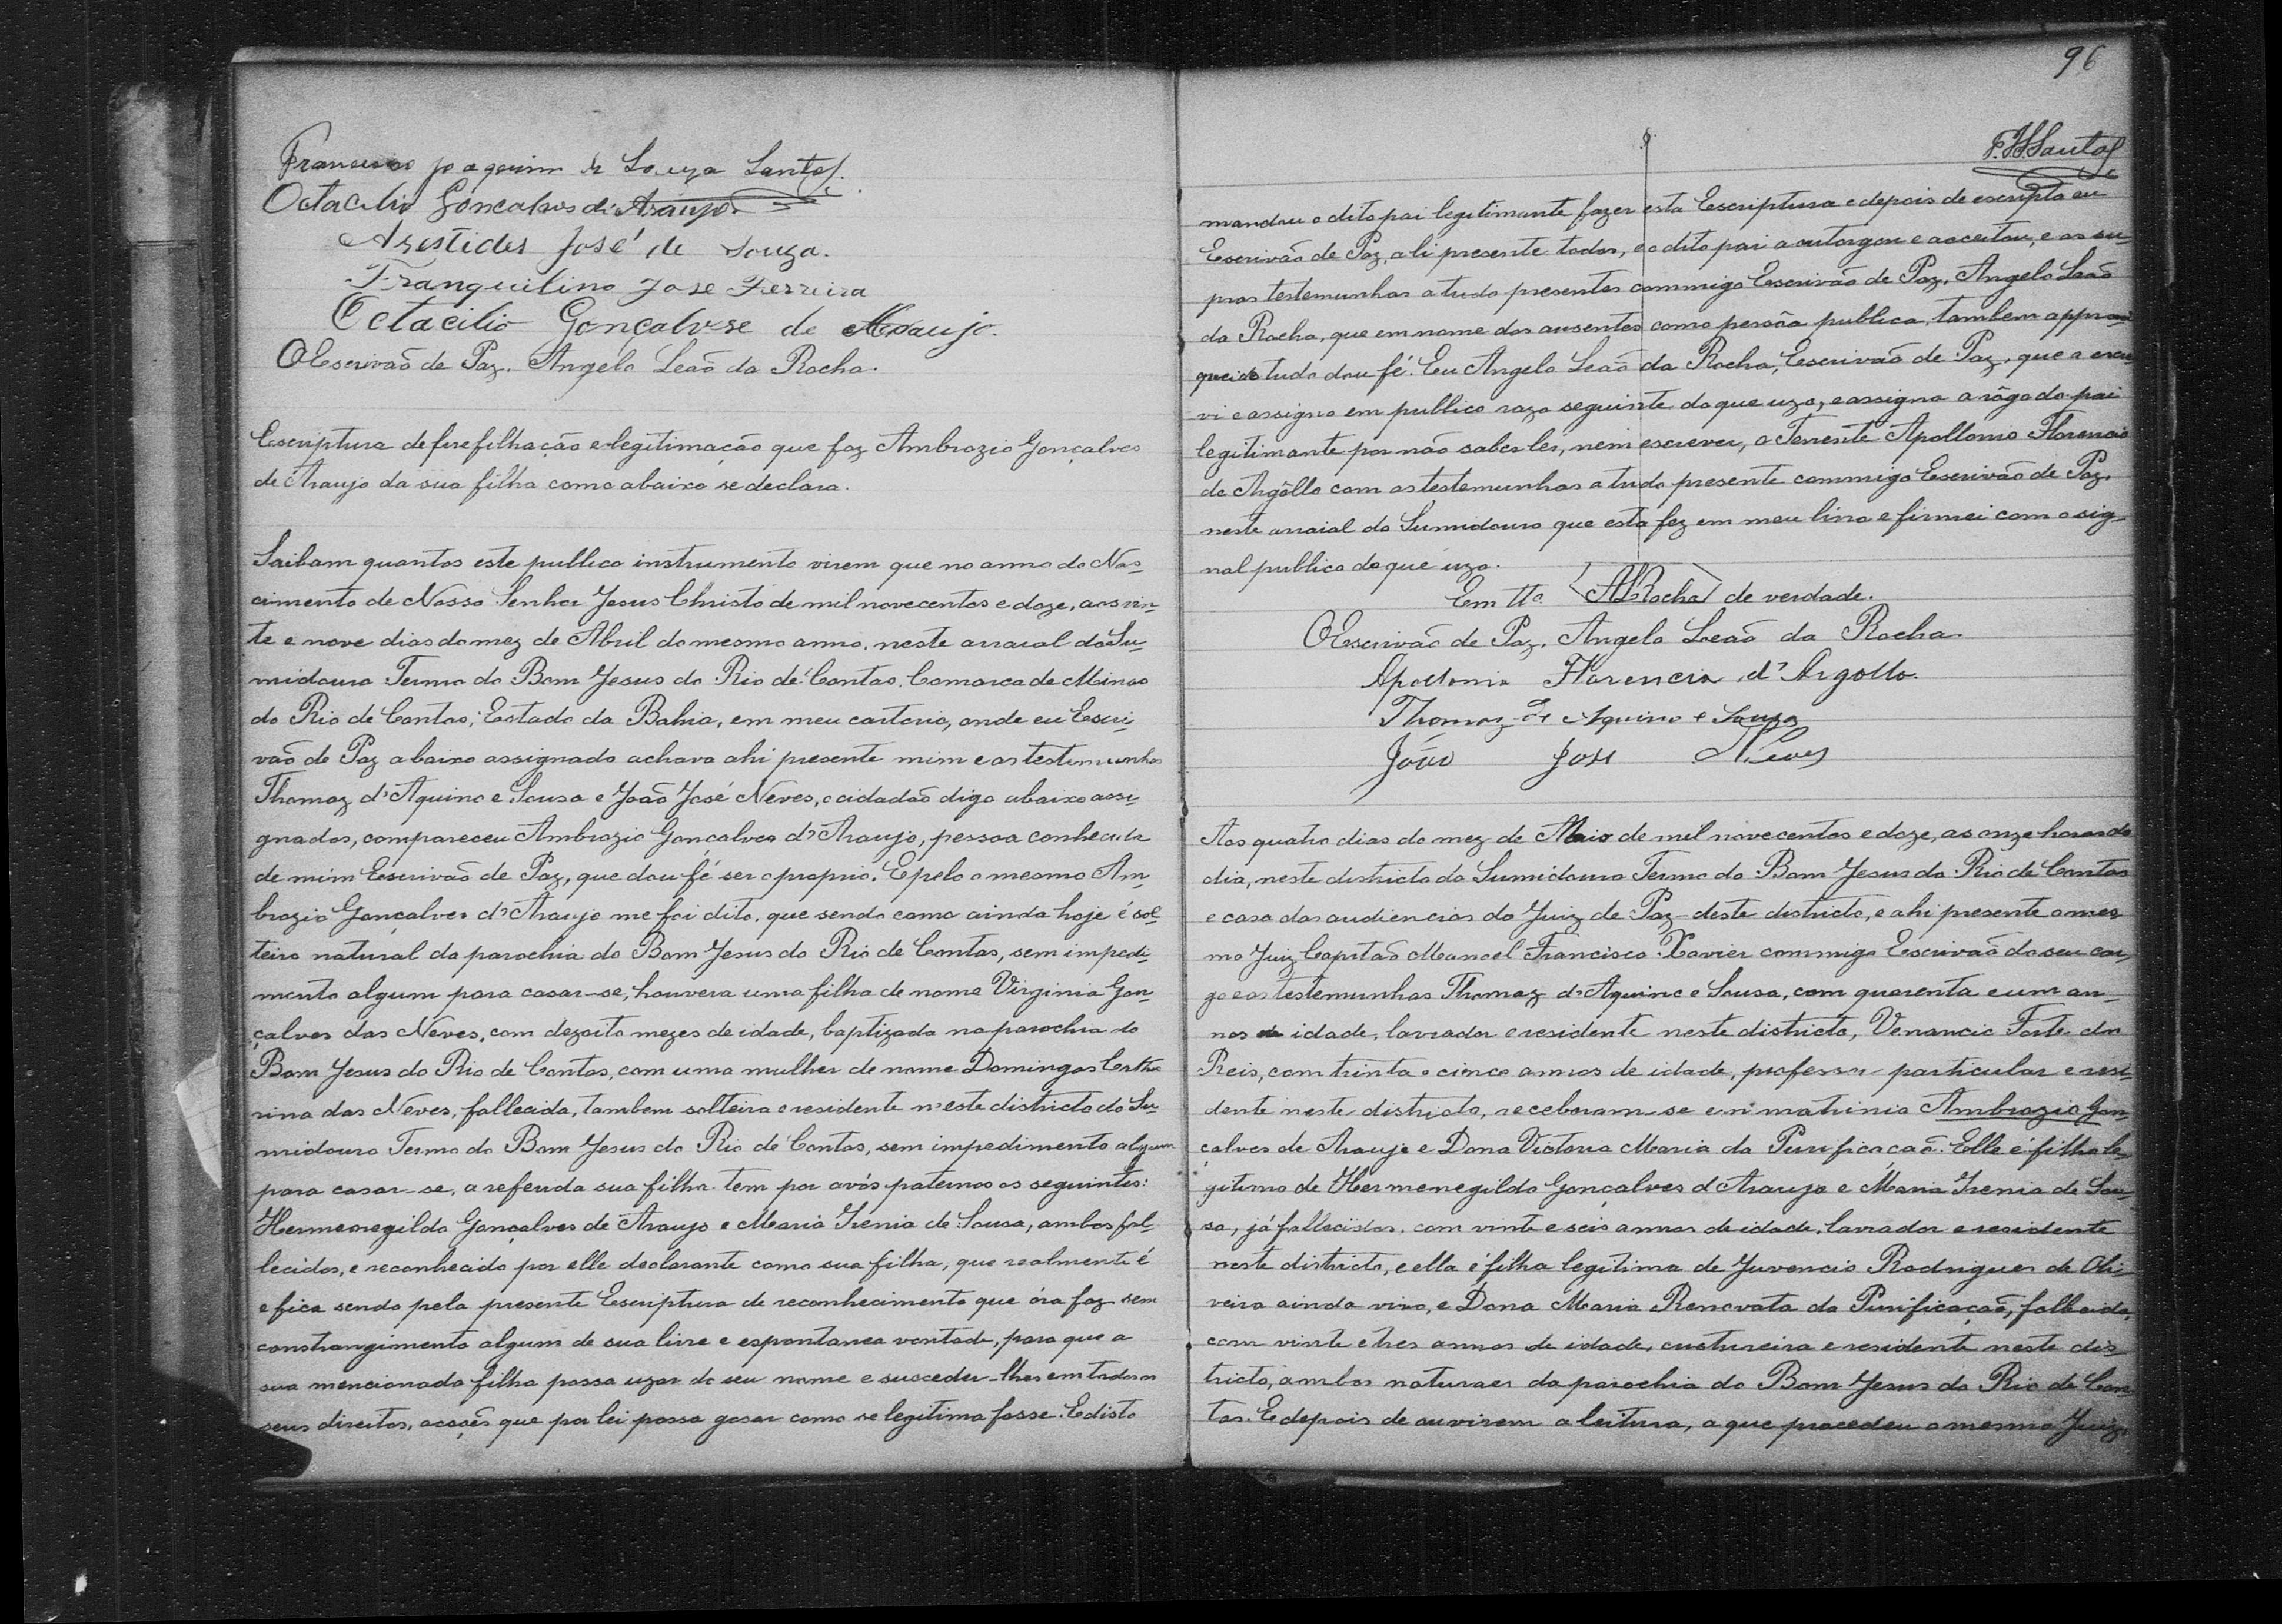 Francisco Joaquim de Souza Santos.
Octacilio Gonçalves de Araujo
Aristides José de Souza.
Tranquilino Jose Ferreira
Octacilio Gonçalvese de Araujo.
O Escrivão de Paz. Angelo Leão da Rocha.
Escriptura de perefilhação e legitimação que faz Ambrozio Gonçalves
de Araujo da sua filha como abaixo se declara.
Saibam quantos este publico instrumento virem que no anno do Nas-
cimento de Nosso Senhor Jesus Christo de mil novecentos e doze, aos vin-
te e nove dias do mez de Abril do mesmo anno, neste arraial do Su-
midouro Termo do Bom Jesus do Rio de Contas, Comarca de Minas
do Rio de Contas, Estado da Bahia, em meu cartorio, onde eu Escri-
vão de Paz abaixo assignado achava ahi presente mim e as testemunhas
Thomaz d'Aquino e Sousa e João José Neves, o cidadão digo abaixo assi-
gnados, compareceu Ambrozio Gonçalves d'Araujo, pessoa conhecida
de mim Escrivão de Paz, que dou fé ser o proprio. E pelo o mesmo Am-
brozio Gonçalves d'Araujo me foi dito, que sendo como ainda hoje é sol-
teiro natural da parochia do Bom Jesus do Rio de Contas, sem impedi-
mento algum para casar-se, houvera uma filha de nome Virginia Gon-
çalves das Neves, com dezoito mezes de idade, baptizada na parochia do
Bom Jesus do Rio de Contas, com uma mulher de nome Domingas Catha
rina das Neves, fallecida, tambem solteira e residente n'este districto do Su-
midouro Termo do Bom Jesus do Rio de Contas, sem impedimento algum
para casar-se, a referida sua filha tem por avós paternos os seguintes:
Hermenegildo Gonçalves de Araujo e Maria Irenia de Sousa, ambos fal-
lecidos, e reconhecido por elle declarante como sua filha, que realmente é
e fica sendo pela presente Escriptura de reconhecimento que óra faz sem
constrangimento algum de sua livre e espontanea vontade, para que a
sua mencionada filha possa uzar do seu nome e succeder-lhes em todos os
seus direitos, acções que por lei possa gosar como se legitima fosse. E disto
96
F. Santos
mandou o dito pai legitimante fazer esta Escriptura e depois de escripta eu
Escrivão de Paz, a li presente todos, e o dito pai a outorgou e acceitou, e as su-
pras testemunhas a tudo presentes commigo Escrivão de Paz, Angelo Leão
da Rocha, que em nome dos ausentes como persôa publica, tambem approvei
que de tudo dou fé. Eu Angelo Leão da Rocha, Escrivão de Paz, que a escre-
vi e assigno em publico razo seguinte do que uzo, e assigna a rôgo do pai
legitimante por não saber ler, nem escrever, o Tenente Apollonio Florencio
de Argôllo com as testemunhas a tudo presente commigo Escrivão de Paz,
neste arraial do Sumidouro que esta fez em meu livro e firmei com o sig-
nal publico do que uzo.
Em tto ALRocha de verdade.
O Escrivão de Paz, Angelo Leão da Rocha.
Apollonio Florencio d'Argollo.
Thomaz de Aquino e Sousa
João Jose Neves
Aos quatro dias do mez de Maio de mil novecentos e doze, as onze horas do
dia, neste districto do Sumidouro Termo do Bom Jesus do Rio de Contas
e casa das audiencias do Juiz de Paz deste districto, e ahi presente o mes-
mo Juiz Capitão Manoel Francisco Xavier commigo Escrivão do seu car-
go e as testemunhas Thomaz d'Aquino e Sousa, com quarenta e um an-
nos de idade, lavrador e residente neste districto, Venancio Forte dos
Reis, com trinta e cinco annos de idade, professor particular e resi-
dente neste districto, receberam-se em matrinio Ambrozio Gon-
çalves de Araujo e Dona Victoria Maria da Purificação. Elle é filho le-
gitimo de Hermenegildo Gonçalves d'Araujo e Maria Irenia de Sou-
sa, já fallecidos, com vinte e seis annos de idade, lavrador e residente
neste districto, e ella é filha legitima de Juvencio Rodrigues de Oli-
veira ainda vivo, e Dona Maria Renovata da Purificação, fallecida,
com vinte e tres annos de idade, custureira e residente neste dis-
tricto, ambos naturaes da parochia do Bom Jesus do Rio de Con-
tas. E depois de ouvirem a leitura, a que procedeu o mesmo Juiz,